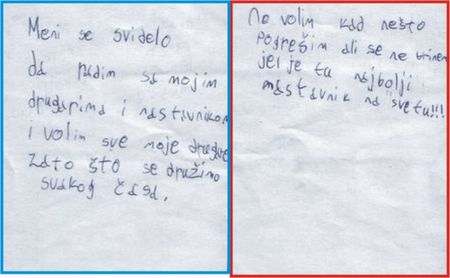 Meni se svidelo
da radim sa mojim
drugarima i nastavnikom
i volim sve moje drugare
zato što se družimo
svakog časa.
Ne volim kad nešto
pogrešim ali se ne brinem
jel je tu najbolji
nastavnik na svetu!!!